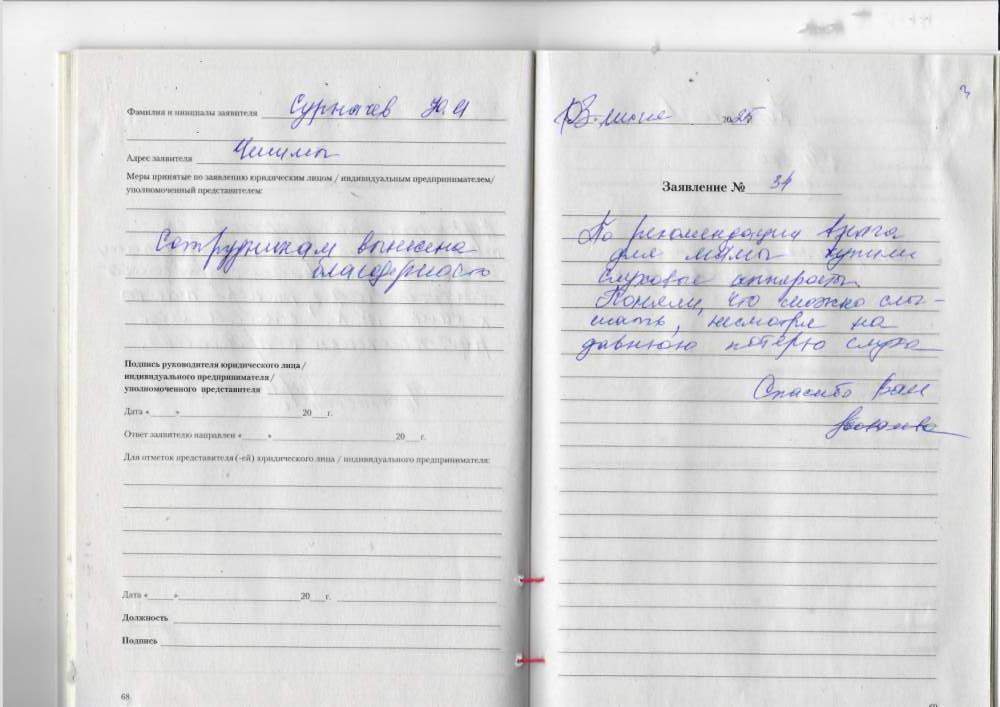 Фамилия и инициалы заявителя Сурначев Ю.И
Адрес заявителя Чишмы
Меры принятые по заявлению юридическим лицом / индивидуальным предпринимателем/
уполномоченный представителем:
Сотрудникам вынесена
благодарность
Подпись руководителя юридического лица /
индивидуального предпринимателя /
уполномоченного представителя
Дата «____»____20__г.
Ответ заявителю направлен «____»____20__г.
Для отметок представителя (-ей) юридического лица / индивидуального предпринимателя:
Дата «____»____20__г.
Должность
Подпись
68
3
03. июня 2025
Заявление № 34
По рекомендации врача
для мамы купили
слуховые аппараты.
Поняли, что можно слы-
шать, несмотря на
давнюю потерю слуха
Спасибо Вам
69